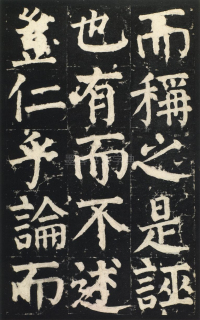 而稱之是誣
也有而不述
豈仁乎論而